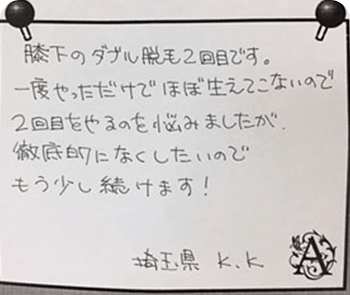 膝下のダブル脱毛2回目です。
一度やっただけでほぼ生えてこないので
2回目をやるのを悩みましたが、
徹底的になくしたいので
もう少し続けます!
埼玉県 K.K
A